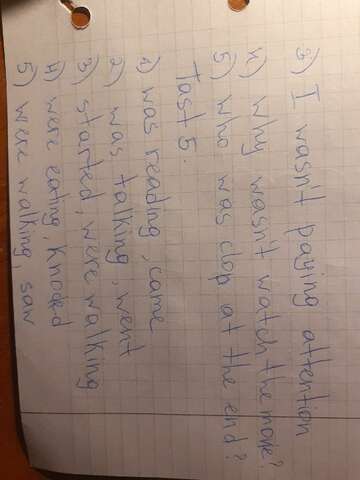 3) I wasn't paying attention
4) Why wasn't watch the movie?
5) Who was clop at the end?
Tast 5.
1) was reading, came
2) was talking, went
3) started, were walking
4) were eating, knoded
5) were walking, saw